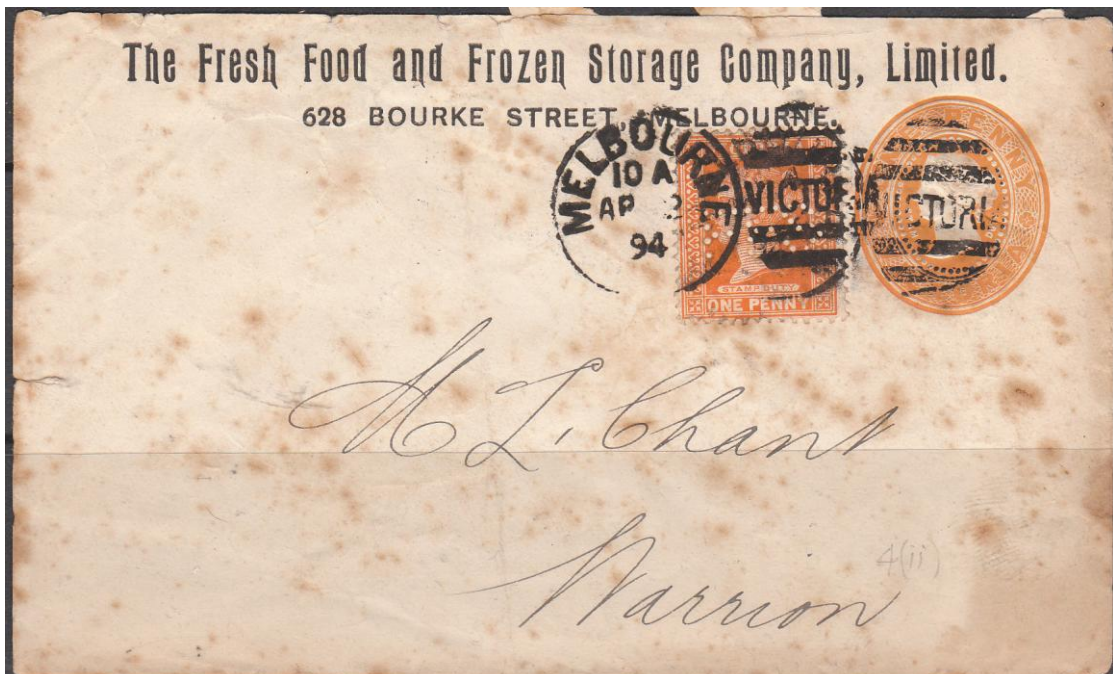 The Fresh Food and Frozen Storage Company, Limited.
628 BOURKE STREET, MELBOURNE.
MELBOURNE
10 A
AP
94
VICTORIA
VICTORIA
STAMP DUTY
ONE PENNY
M L. Chant
Warrion
4(ii)